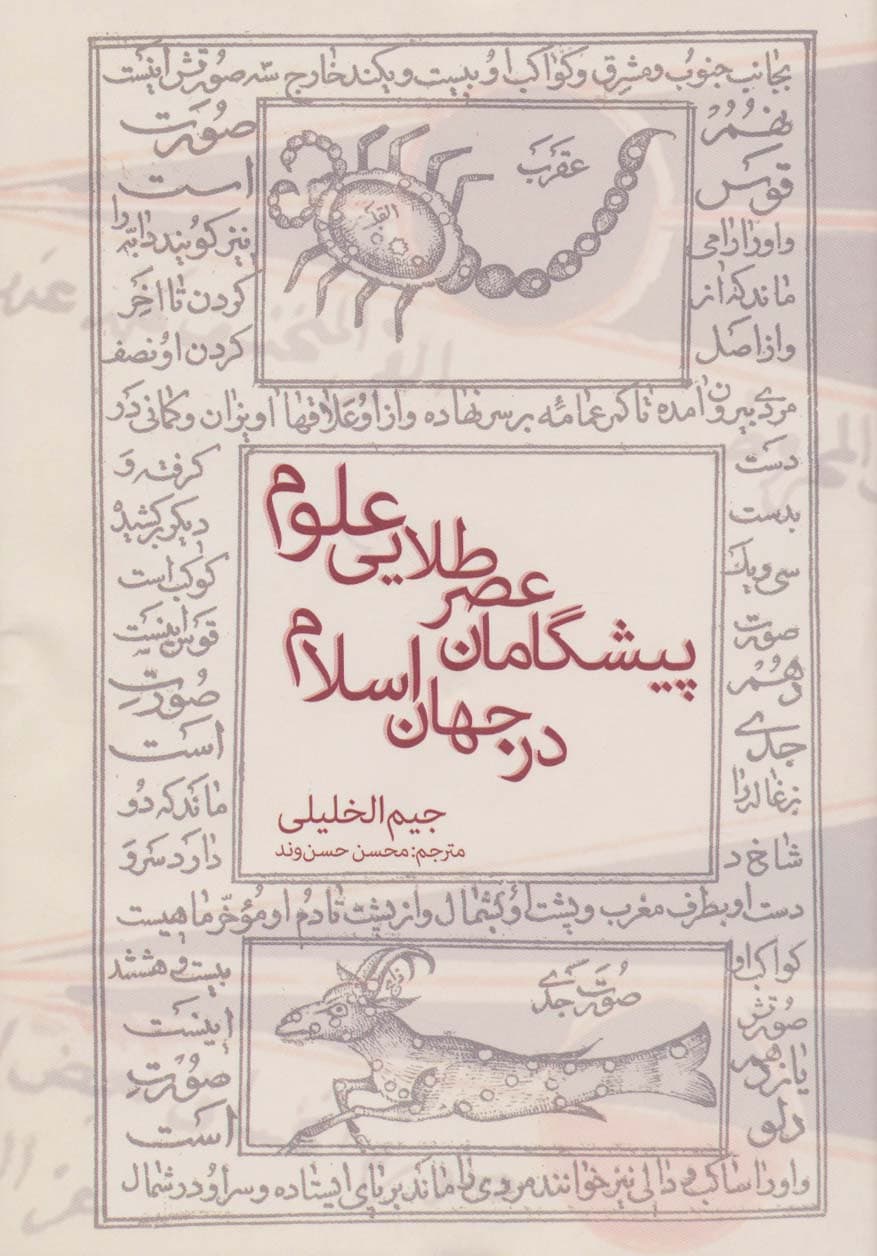 بجانب جنوب و مشرق و کواکب او بیست و یکند خارج سه صورتش اینست
نهم صورت
قوس است
عقرب
القلب
و او را رامی نیز کویند دابه را
ماند که از کردن تا اخر
و از اصل کردن او نصف
مردی بیرون امده تا کمر عمامه بر سر نهاده و از او علاقها اویزان و کمانی در
دست کرفته و
بدست دیکر کشیده
سی و یک کوکب است
صورت قوس اینست
دهم صورت
جدی است
بزغاله را ماند که دو
شاخ دارد سر و
پیشگامان عصر طلایی علوم
در جهان اسلام
جیم الخلیلی
مترجم: محسن حسن‌وند
دست او بطرف مغرب و پشت او بشمال و از پشت تا دم او مؤخر ماهیست
کواکب او بیست و هشتند
صورتش اینست
یازدهم صورت
دلو است
صورت جدی
و او را ساکب و دالی نیز خوانند مردی را ماند بر پای ایستاده و سر او در شمال